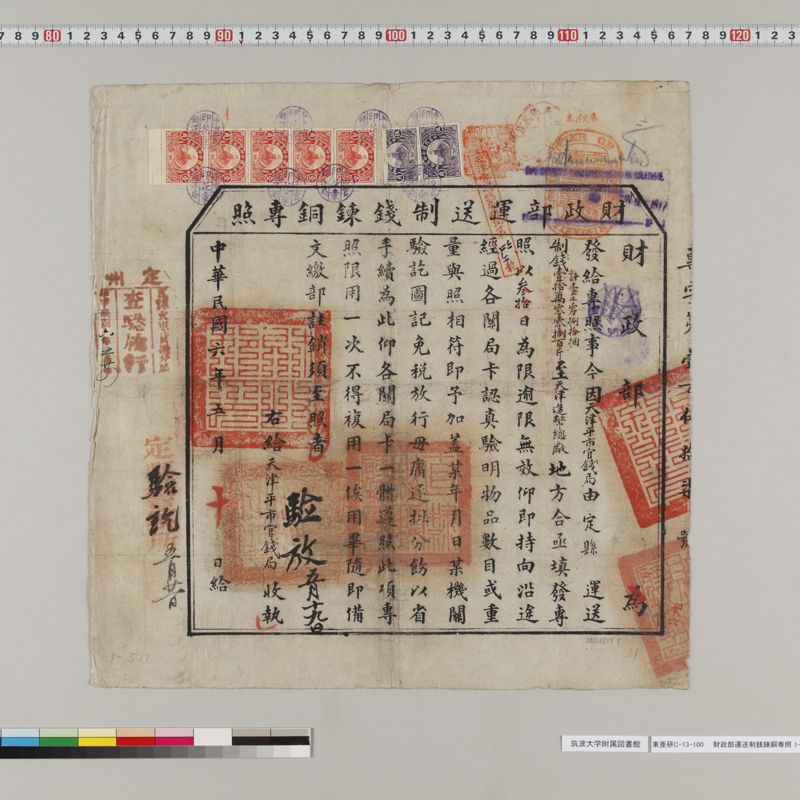 財政部運送制錢鍊銅專照
財政部 為
發給專照事今因天津平市官錢局由定縣運送
制錢壹拾萬零叁千捌百斤至天津造幣總廠地方合亟填發專
計壹千零捌拾捆
照以叁拾日為限逾限無效仰即持向沿途
經過各關局卡認真驗明物品數目或重
量與照相符即予加蓋某年月日某機關
驗訖圖記免稅放行毋庸逐批分飭以省
手續為此仰各關局卡一體遵照此項專
照限用一次不得複用一俟用畢隨即備
文繳部註銷須至照者
右給天津平市官錢局 收執
中華民國六年五月十日給
驗放 五月九日
定州
查驗放行
定
驗訖 五月廿日
1-517
筑波大学附属図書館
東亜研C-13-100 財政部運送制銭錬銅専照 1-